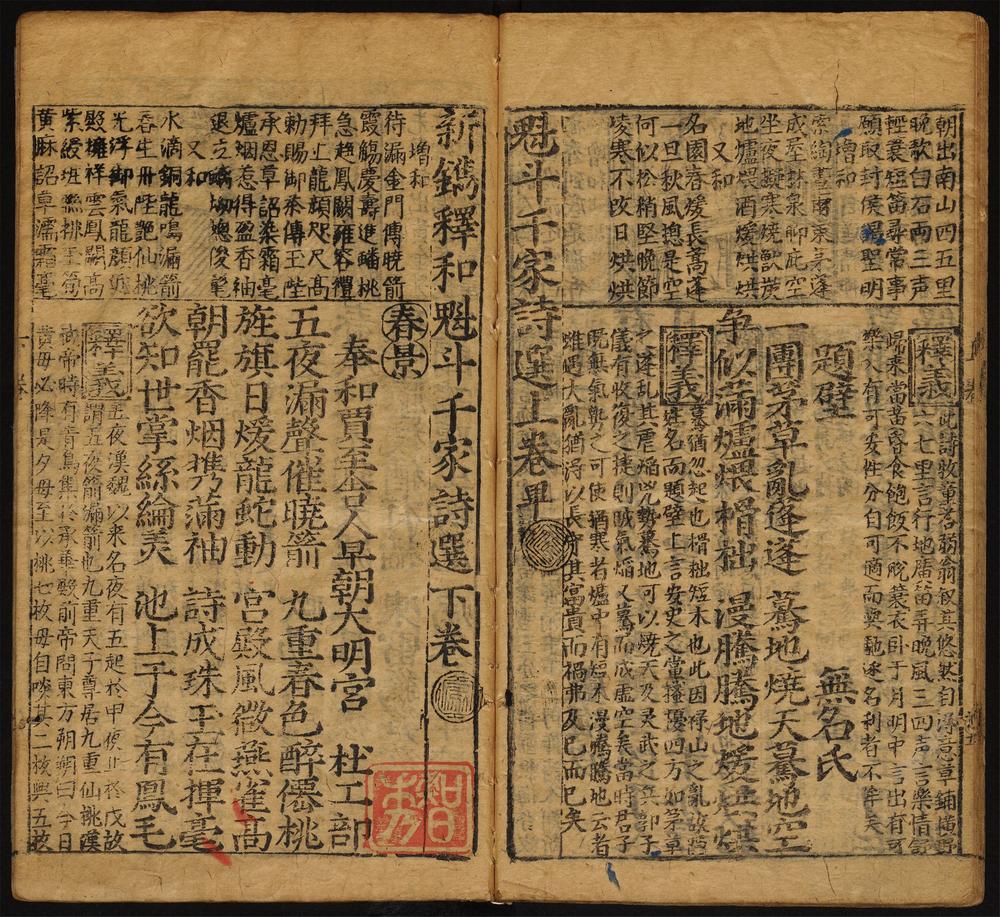 朝出南山四五里
晚敲白石兩三声
輕蓑短笛尋常事
願取封侯 聖明
增和
晝爾束茅蓬
成屋 泉聊庇空
坐夜擬寒燒獸炭
地爐煨酒煖烘烘
又和
名園春煖長蒿蓬
一旦秋風總是空
何似松稍堅晚節
凌寒不改日烘烘
釋義 此詩牧童答弱翁叙其悠然自淂意草鋪橫野
六七里言行地廣笛弄晚風三四声言樂情舒
歸來當黃昏食飽飯不脫蓑衣卧于月明中言出有可
樂入有可安性分自可適而與馳逐名利者不牟矣
題壁 無名氏
一團茅草亂蓬蓬 驀地燒天驀地空
争似滿爐煨榾柮 漫騰騰地煖烘烘
釋義 驀猶忽起也榾柮短木也此因禄山之亂故
姓名而題壁上言安史之黨擾四方如茅草
之蓬乱其虐焰兇勢驀地可以燒天及灵武之兵郭子
儀有收復之捷則賊氣焰又驀而成虛空矣當時君子
既無氣勢之可使猶寒者爐中有短木漫騰騰地云者
雖遇大亂猶淂以長守其富貴而禍弗及已而已矣
魁斗千家詩選上卷畢
新鐫釋和魁斗千家詩選下卷
增和
待漏金門傳曉箭
霞觴慶壽進蟠桃
急趨鳳闕雍容禮
拜上龍顔咫尺高
勅賜御 傳玉陛
承恩草詔染霜毫
爐烟惹得盈香袖
退立 總俊髦
又和
水滴銅龍鳴漏箭
春生丹陛艷仙桃
光浮御氣龍顔
殿擁祥雲鳳闕高
紫綬班聯排玉笏
黄麻詔草濡霜毫
春景
奉和賈至舍人早朝大明宮 杜工部
五夜漏聲催曉箭 九重春色醉僊桃
旌旗日煖龍蛇動 宮殿風微燕雀高
朝罷香烟携滿袖 詩成珠玉在揮毫
欲知世掌絲綸美 池上于今有鳳毛
釋義 五夜漢魏以来名夜有五起於甲夜止於戊故
謂五夜箭漏箭也九重天子尊居九重仙桃漢
武帝時有青鳥集於承華殿前帝問東方朔朔曰今日
黄母必降是夕母至以桃七枚母自啖其二枚與五枚